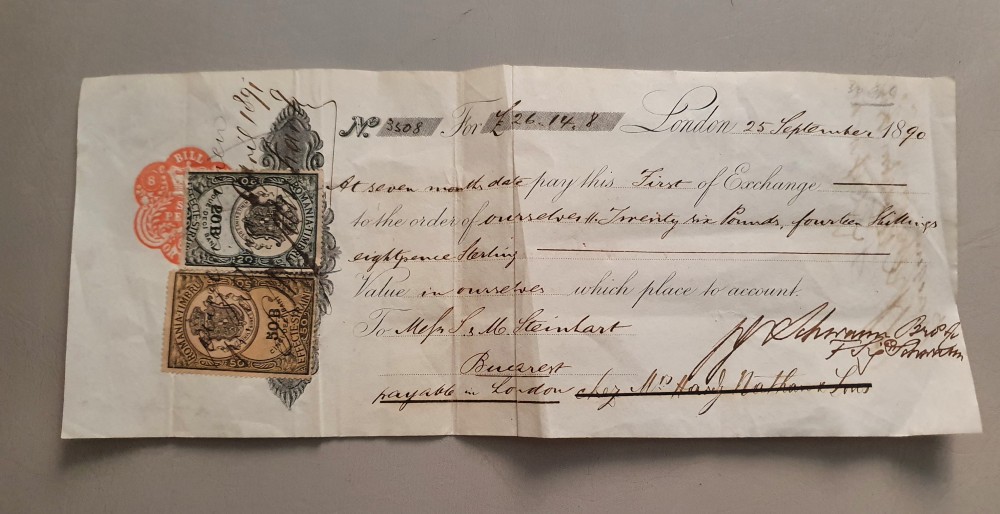 No. 3508 For £26.14.8 London 25 September 1890
At seven months date pay this First of Exchange
to the order of ourselves the Twenty six Pounds, fourteen Shillings
eightpence Sterling
Value in ourselves which place to account.
To Messrs S & M Steinhart
Bucarest
payable in London chez Mrs Hardy Nathan & Sons
Schwann Bros & Co
1891
BILL
ROMANIA TIMBRU
EFECTE SI RI
20 B
20
ROMANIA TIMBRU
50 B
50